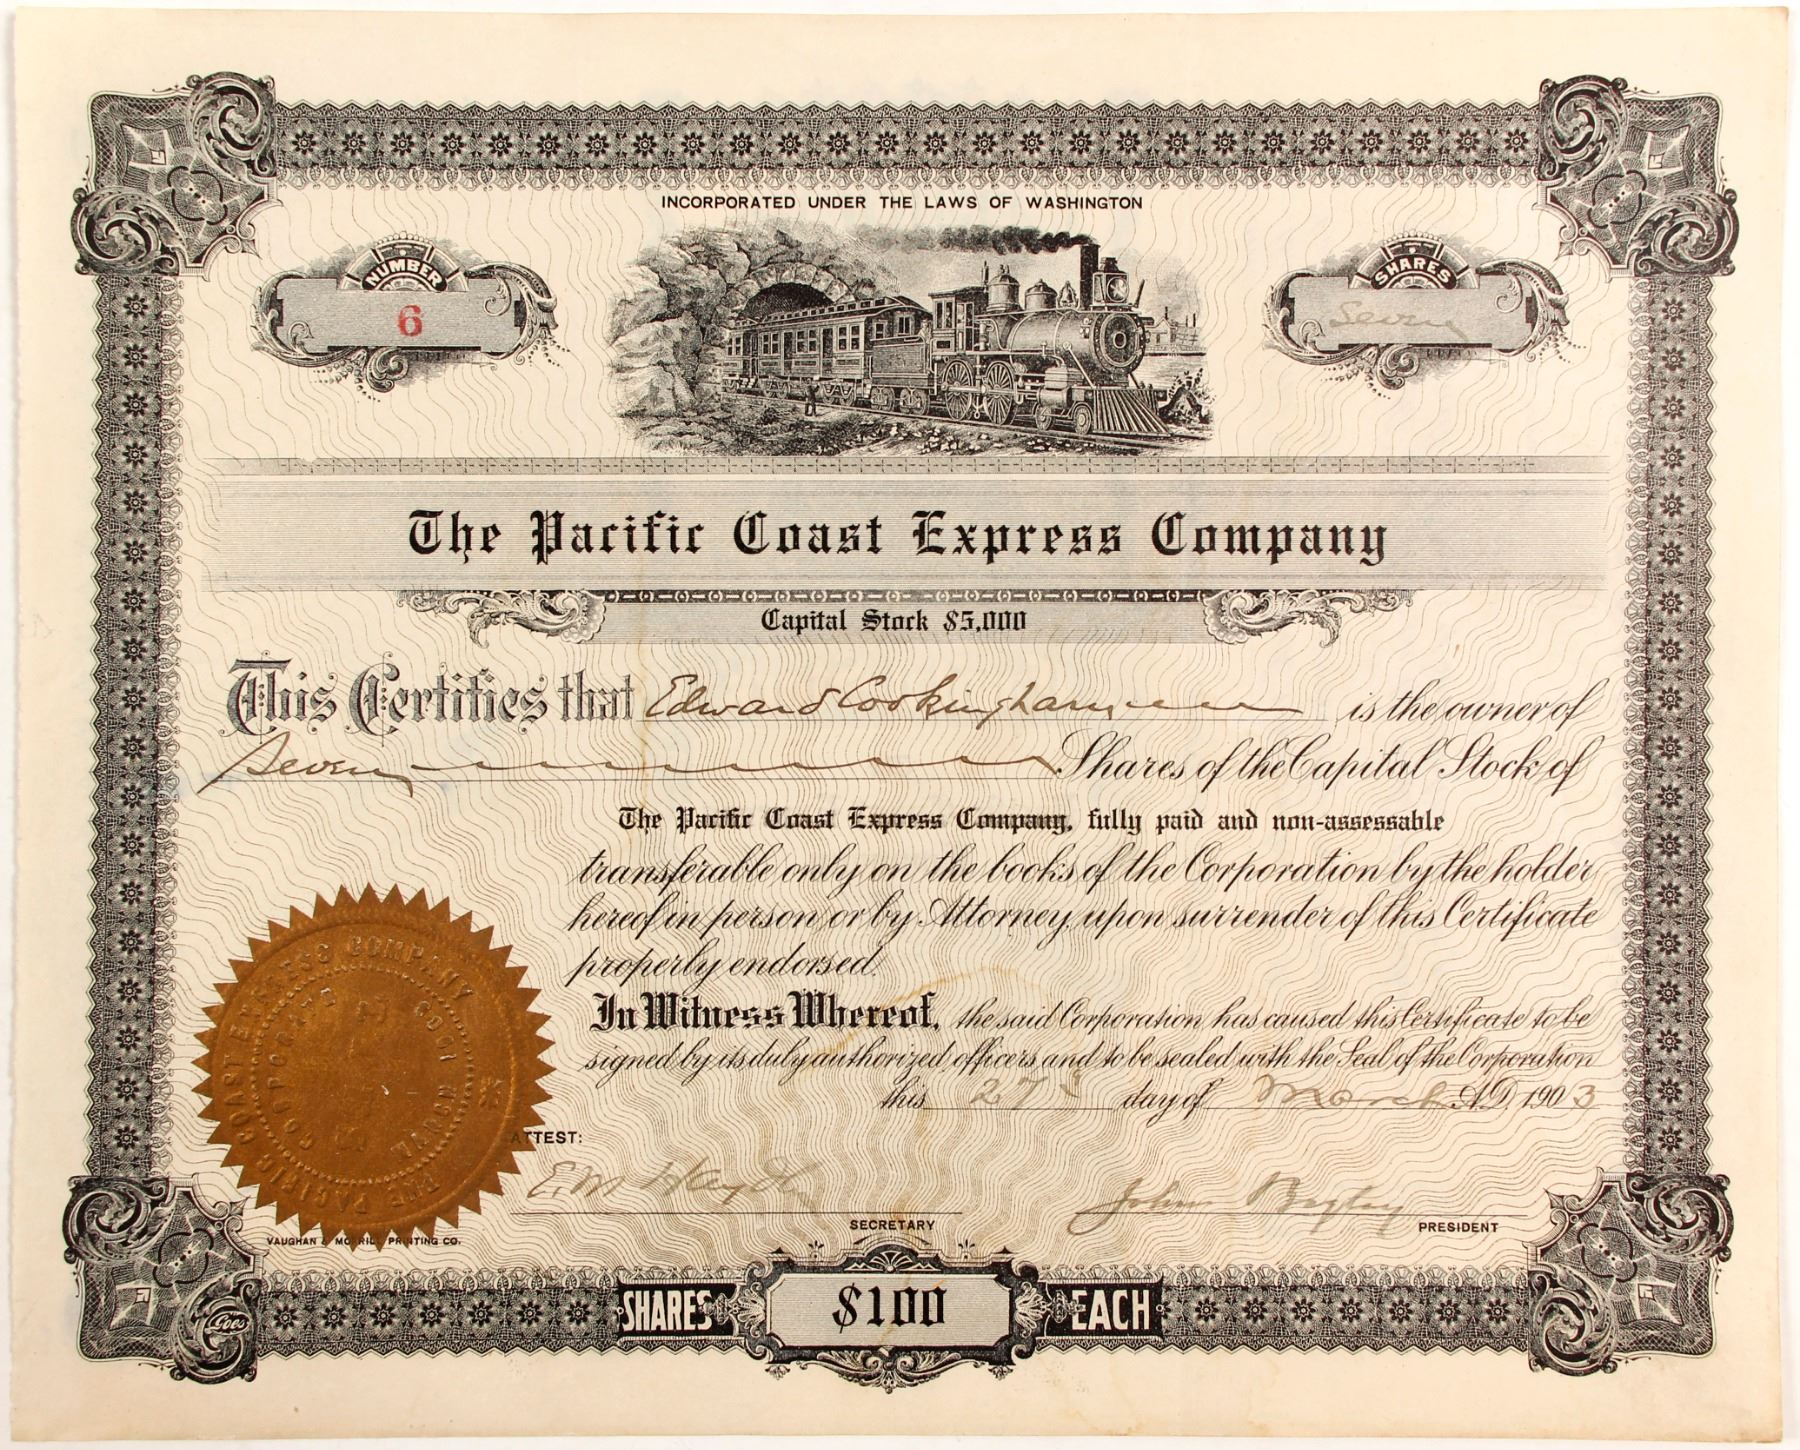 INCORPORATED UNDER THE LAWS OF WASHINGTON
NUMBER
6
SHARES
Seven
The Pacific Coast Express Company
Capital Stock $5,000
This Certifies that Edward Cookingham is the owner of
Seven Shares of the Capital Stock of
The Pacific Coast Express Company, fully paid and non-assessable
transferable only on the books of the Corporation by the holder
hereof in person or by Attorney, upon surrender of this Certificate
properly endorsed.
In Witness Whereof, the said Corporation has caused this Certificate to be
signed by its duly authorized officers and to be sealed with the Seal of the Corporation
this 27th day of March A.D. 1903
THE PACIFIC COAST EXPRESS COMPANY
ATTEST:
E. M.
John
SECRETARY
PRESIDENT
VAUGHAN & MORRILL PRINTING CO.
Goes
SHARES $100 EACH